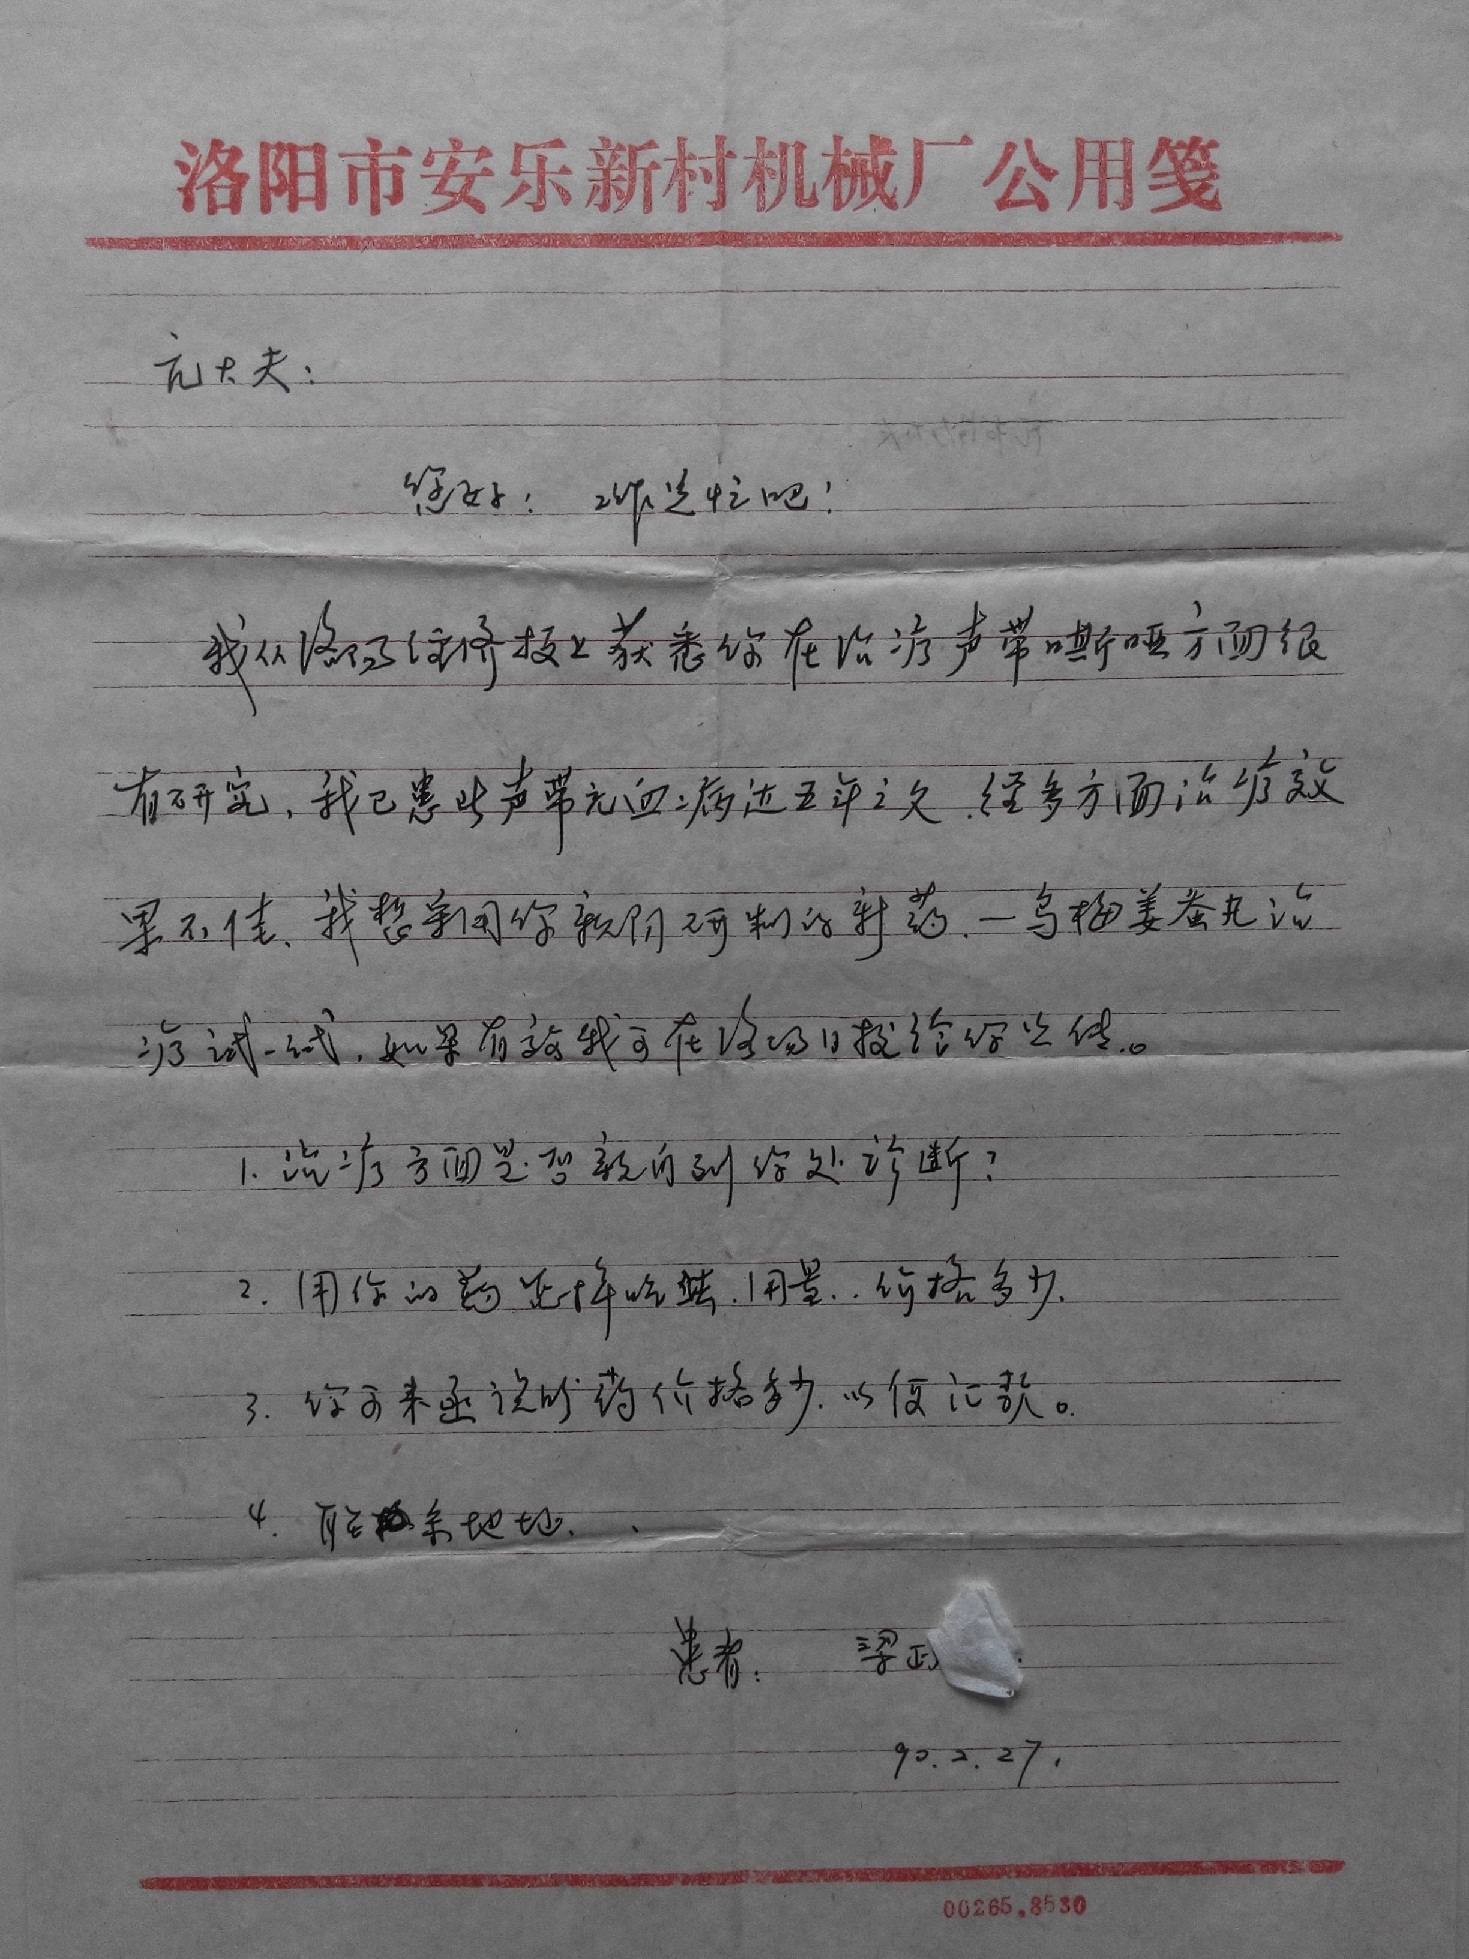 洛阳市安乐新村机械厂公用笺
亢大夫：
您好！ 工作忙吧！
我从洛阳经济报上获悉你在治疗声带嘶哑方面很
有研究，我已患此声带充血病近五年之久，经多方面治疗效
果不佳、我想采用你亲自研制的新药，一乌梅姜蚕丸治
疗试一试，如果有效我可在洛阳日报给你宣传。
1. 治疗方面是否亲自到你处诊断？
2. 用你的药怎样吃法，用量．价格多少．
3. 你可来函说明药价格多少．以便汇款。
4. 联系地址．
患者： 梁正
90.2.27.
00265.8530